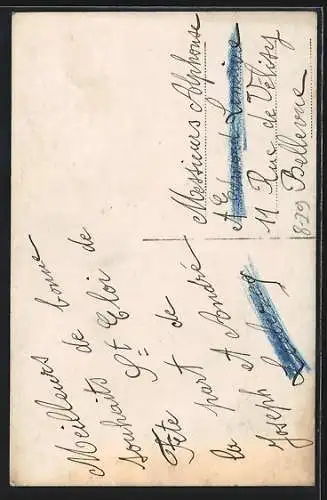 Meilleurs de bonne
souhaits St Eloi de
Fête part de
la et André
Joseph
Messieurs Alphonse
11 Rue de Vélizy
Bellevue
8-29